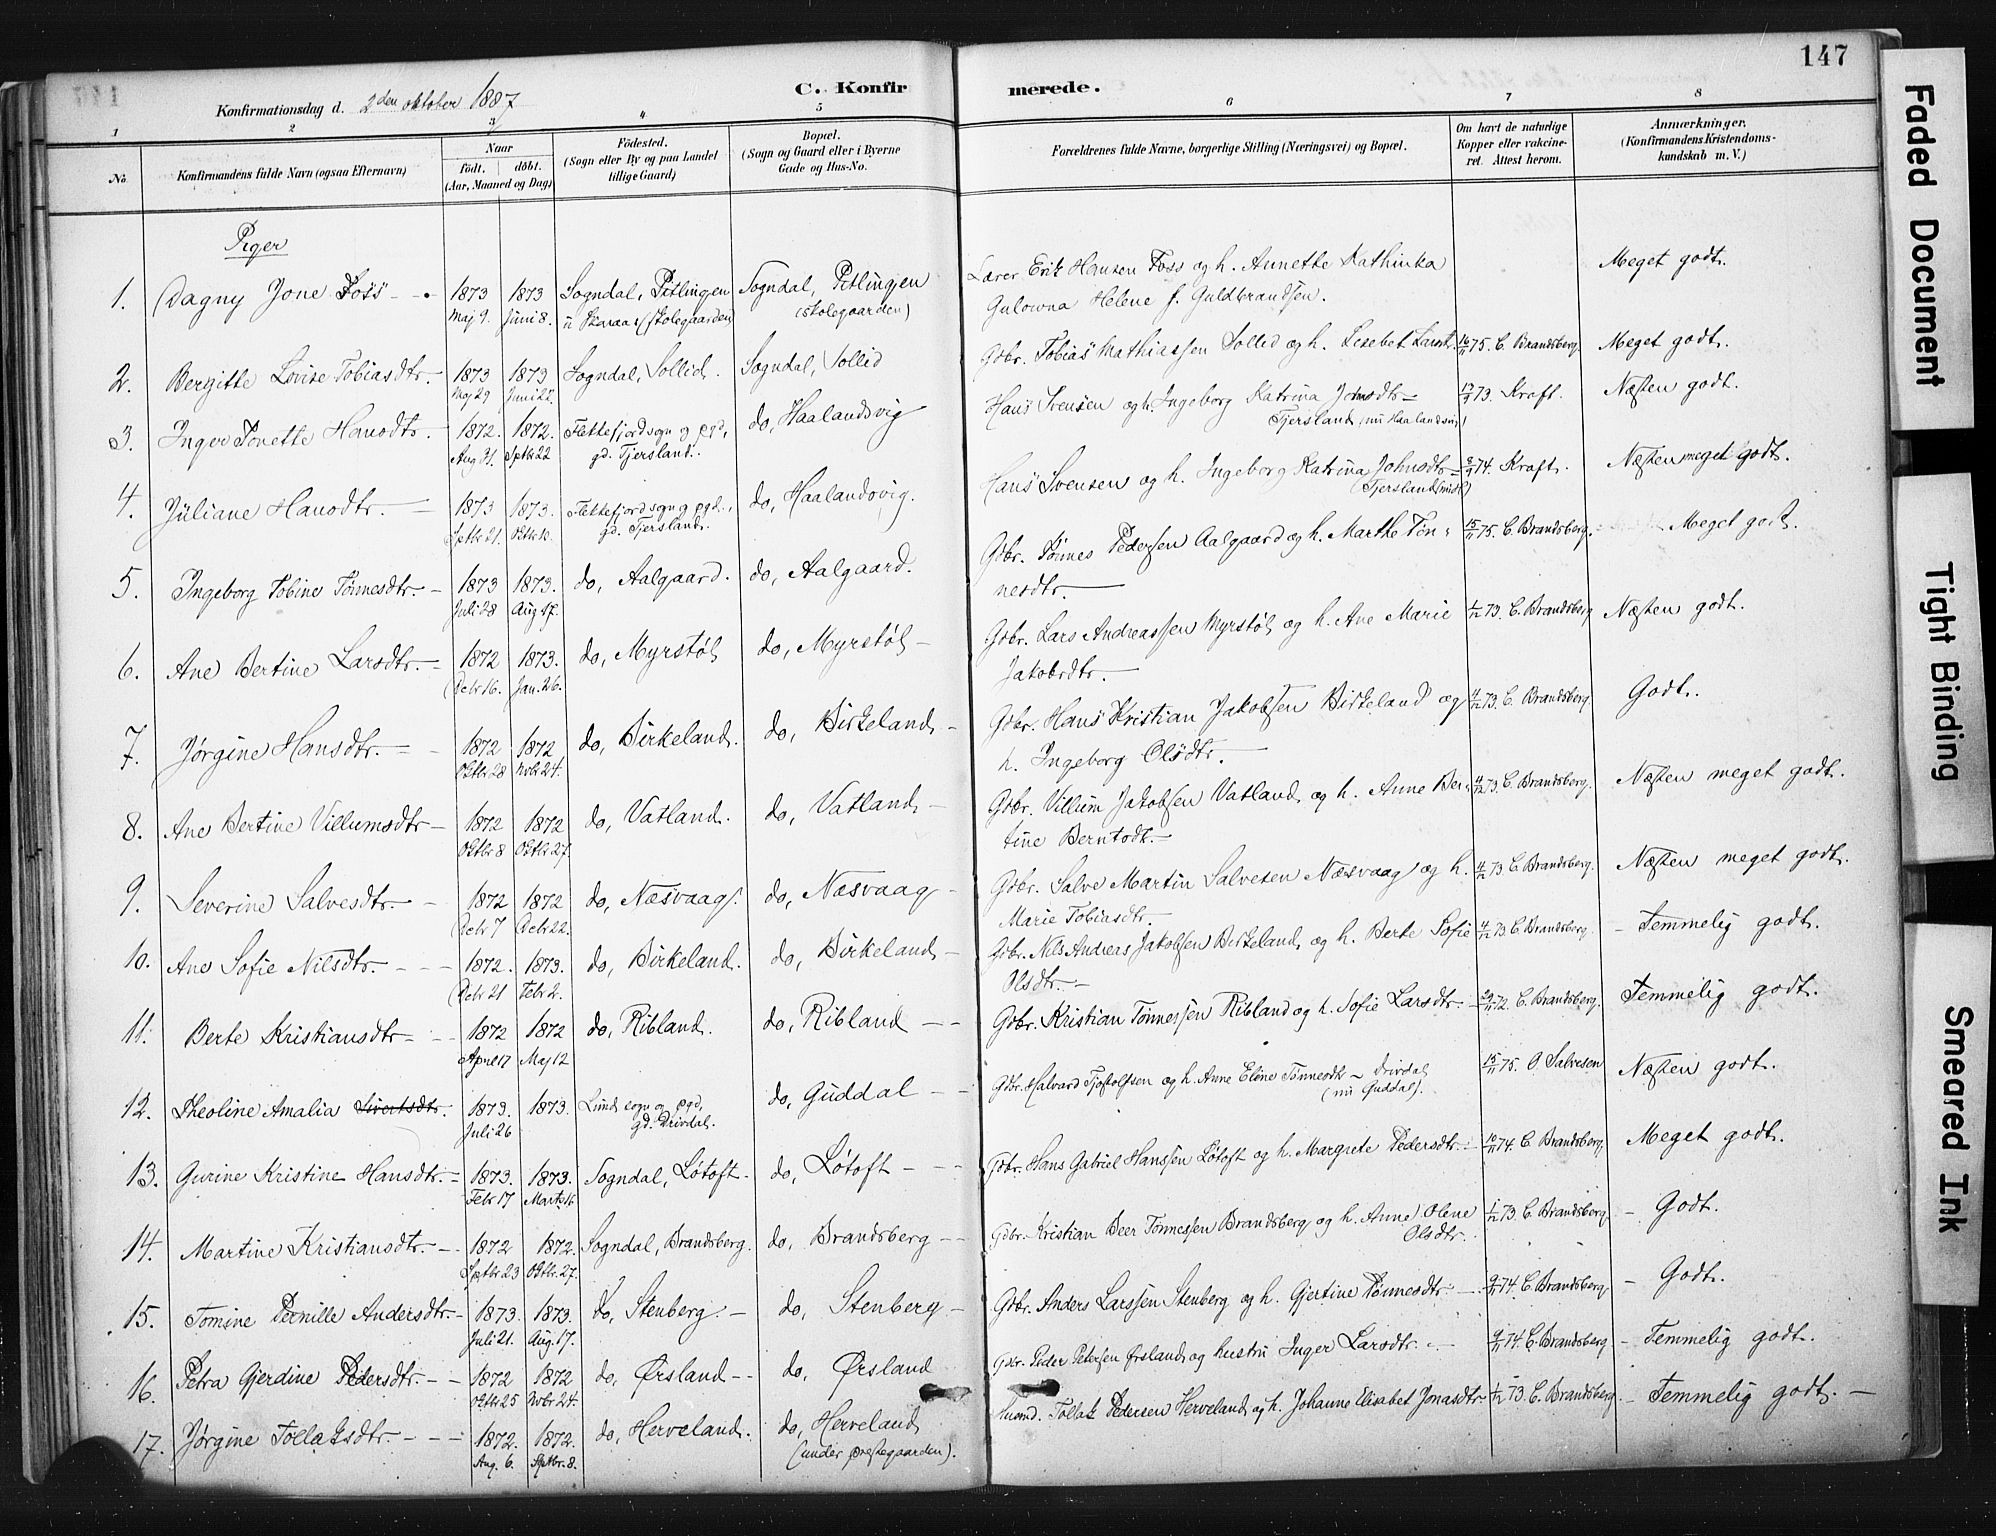 147
Konfirmationsdag d. 2den oktober 1887
C. Konfirmerede.
1 2 3 4 5 6 7 8
No.
Konfirmandens fulde Navn (ogsaa Efternavn)
Naar
født. døbt.
(Aar, Maaned og Dag)
Fødested.
(Sogn eller By og paa Landet
tillige Gaard)
Bopæl.
(Sogn og Gaard eller i Byerne
Gade og Hus-No.
Forældrenes fulde Navne, borgerlige Stilling (Næringsvei) og Bopæl.
Om havt de naturlige
Kopper eller vakcine-
ret. Attest herom.
Anmærkninger.
(Konfirmandens Kristendoms-
kundskab m. V.)
Piger
1. Dagny Jone Foss 1873 Maj 9. 1873 Juni 8. Sogndal, Pitlingen (skolegaarden) Sogndal, Pitlingen (skolegaarden) Lærer Erik Hansen Foss og h. Annette Kathinka
Gulowna Helene f. Guldbrandsen. Meget godt.
2. Bergitte Lovise Tobiasdtr. 1873 Maj 29 1873 Juni 22. Sogndal, Sollid. Sogndal, Sollid Gdbr. Tobias Mathiassen Sollid og h. Lisebet 16/11 75. C. Brandsberg. Meget godt.
3. Inger Tonette Hansdtr. 1872. Aug 31. 1872. Sptbr 22 Flekkefjord sogn og pgd, gd. Tjersland. do, Haalandsvig Hans Svensen og h. Ingeborg Katrina Johnsdtr
Tjersland (nu Haalandsvig) 73. Kraft. Næsten godt.
4. Juliane Hansdtr. 1873 Sptbr 21. 1873. Oktbr 12. Flekkefjord sogn og pgd., gd. Tjersland. do, Haalandsvig. Hans Svensen og h. Ingeborg Katrina Johnsdtr
74. Kraft. Næsten meget godt.
5. Ingeborg Tobine Tønnesdtr. 1873 Juli 28 1873. Aug 17. do, Aalgaard. do, Aalgaard. Gdbr. Tønnes Pedersen Aalgaard og h. Marthe Tøn-
nesdtr. 15/11 75. C. Brandsberg. Meget godt.
6. Ane Bertine Larsdtr. 1872 Decbr 16. 1873. Jan. 26. do, Myrstøl do, Myrstøl Gdbr. Lars Andreassen Myrstøl og h. Ane Marie
Jakobsdtr. 1/12 73. C. Brandsberg Næsten godt.
7. Jørgine Hansdtr. 1872 Oktbr 28 1872 Nvbr 24. do, Birkeland. do, Birkeland Gdbr. Hans Kristian Jakobsen Birkeland og
h. Ingeborg Olsdtr. 4/12 73. C. Brandsberg. Godt.
8. Ane Bertine Villumsdtr 1872 Oktbr 8 1872 Oktbr 27. do, Vatland. do, Vatland Gdbr. Villum Jakobsen Vatland og h. Anne Ber-
tine Berntsdt. 4/12 73. C. Brandsberg. Næsten meget godt.
9. Severine Salvesdtr. 1872 Decbr 7 1872 Decbr 22. do, Næsvaag. do, Næsvaag Gdbr. Salve Martin Salvesen Næsvaag og h.
Marie Tobiasdtr. 4/12 73 C. Brandsberg. Næsten meget godt.
10. Ane Sofie Nilsdtr. 1872. Decbr 21 1873. Febr 2. do, Birkeland. do, Birkeland Gdbr. Nils Andreas Jakobsen Birkeland og h. Berte Sofie
Olsdtr. 4/12 73 C. Brandsberg Temmelig godt.
11. Berte Kristiansdtr 1872 April 17 1872 Maj 12 do, Ribland. do, Ribland Gdbr. Kristian Tønnessen Ribland og h. Sofie Larsdtr. 72. C. Brandsberg. Temmelig godt.
12. Theoline Amalia Sivertsdtr. 1873. Juli 26 1873. Lund sogn og pgd, gd. Drivdal. do, Guddal Gdbr. Halvard Tjostolfsen og h. Anne Eline Tønnesdtr Drivdal
(nu Guddal). 15/11 75. O. Salvesen Næsten godt.
13. Gurine Kristine Hansdtr. 1873. Febr 17 1873. Marts 16 Sogndal, Løtoft do, Løtoft Gdbr. Hans Gabriel Hanssen Løtoft og h. Margrete Pedersdtr. 10/11 74. C. Brandsberg Meget godt.
14. Martine Kristiansdtr. 1872 Sptbr 23 1872. Oktbr. 27. Sogndal, Brandsberg. do, Brandsberg Gdbr. Kristian Beer Tønnessen Brandsberg og h. Anne Olene
Olsdtr. 1/12 73. C. Brandsberg Godt.
15. Tomine Pernille Andersdtr. 1873. Juli 21. 1873. Aug. 17. do, Stenberg. do, Stenberg Gdbr. Anders Larssen Stenberg og h. Gjertine Tønnesdtr. 9/11 74. C. Brandsberg Godt.
16. Petra Gjerdine Pedersdtr. 1872 Oktbr 25 1872 Nvbr 24. do, Ørsland do, Ørsland Gdbr. Peder Petersen Ørsland og hustru Inger Larsdtr. 9/11 74. C. Brandsberg Temmelig godt.
17. Jørgine Tollaksdtr. 1872. Aug. 6. 1872. Sptbr. 8. do, Herveland. do, Herveland (under præstegaarden). Husmd. Tollak Pedersen Herveland og h. Johanne Elisabet Jonasdtr. 1/12 73. C. Brandsberg. Temmelig godt.
Faded Document
Tight Binding
Smeared Ink